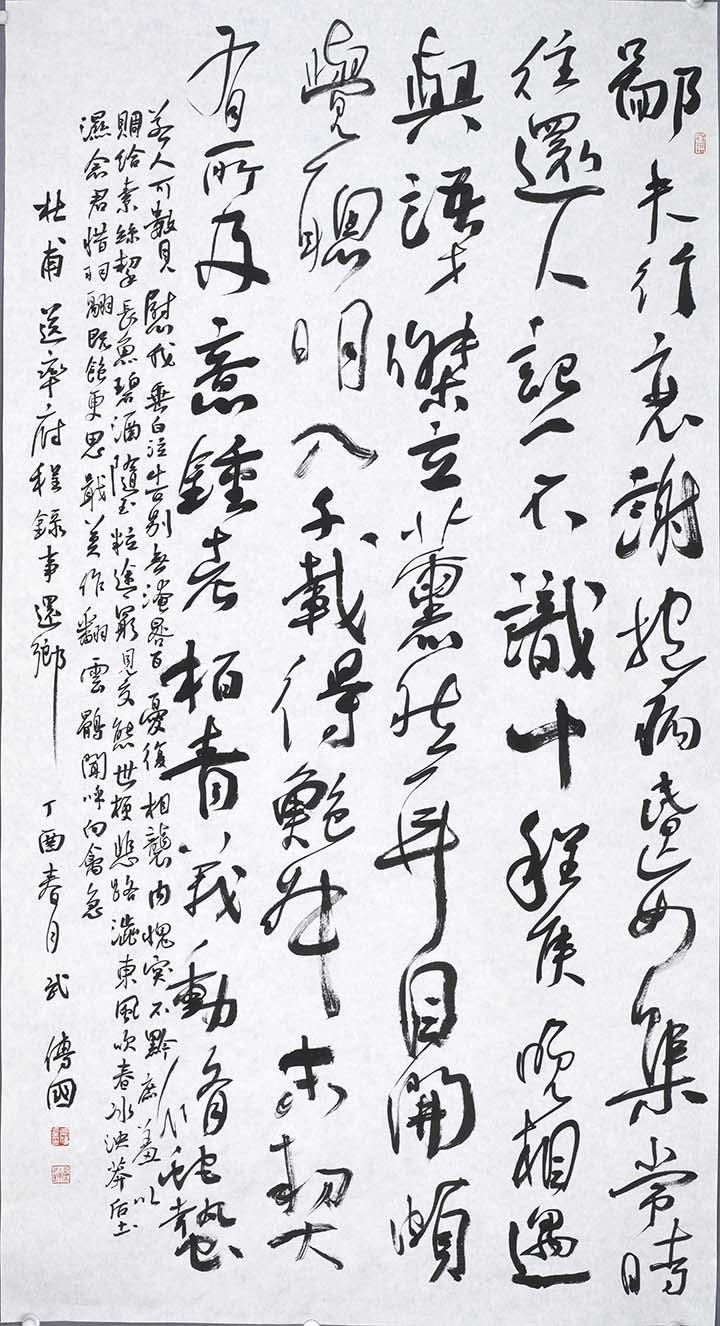 鄙夫行衰謝抱病昬妄集常時
往還人記一不識十程侯晚相遇
與語才傑立薰然耳目開頗
覺聰明入千載得鮑叔末契
有所及意鍾老柏青義動脩蛇蟄
若人可數見慰我垂白泣告別無淹晷百憂復相襲內愧突不黔庶羞以
賙給素絲挈長魚碧酒隨玉粒途窮見交態世梗悲路澁東風吹春冰泱莽后土
濕念君惜羽翮既飽更思戢莫作翻雲鶻聞呼向禽急
杜甫送率府程錄事還鄉 丁酉春月 武傅國